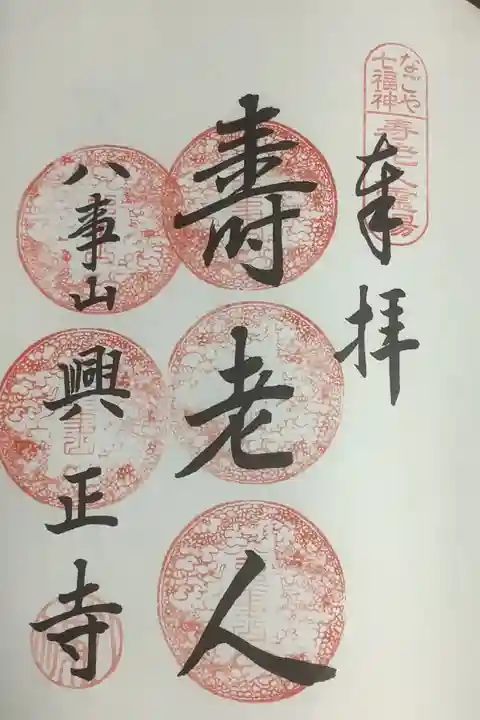 なごや
七福神
寿老人霊場
奉拝
壽老人
八事山
興正寺